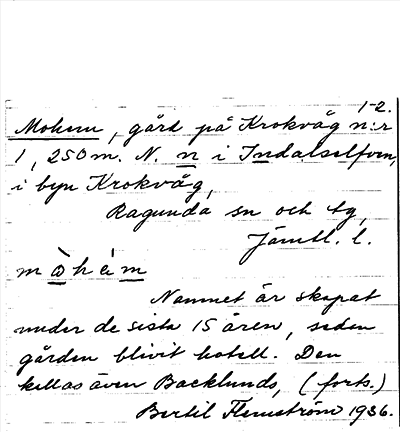 1-2.
Mohem, gård på Krokvåg n:r
1, 250 m. N. n i Indalselfven,
i byn Krokvåg,
Ragunda sn och tg,
Jämtl. l.
mòhém
Namnet är skapat
under de sista 15 åren, sedan
gården blivit hotell. Den
kallas även Backlunds, (forts.)
Bertil Flemström 1936.